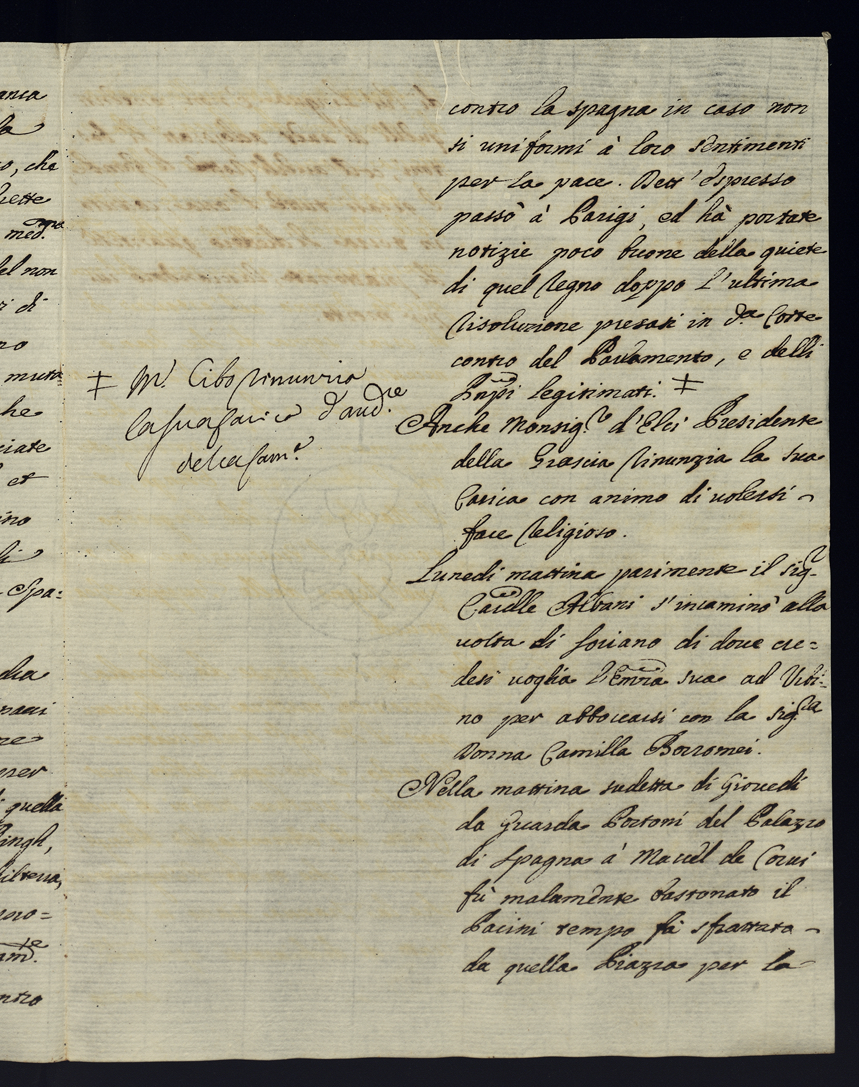 anca
la
o, che
hette
med.ma
del non
ri di
no
muta=
he
ciate
et
ino
li
Spa:
dra
paci
re
per
i quella
Ringh,
ilterra,
pro=
ntro
contro la spagna in caso non
si uniformi à loro sentimenti
per la pace. Dett' espresso
passò à Parigi, ed hà portate
notizie poco buone della quiete
di quel Regno doppo l'ultima
Risoluzione presasi in d.a Corte
contro del Parlamento, e delli
Prñpi legitimati. ‡
‡ M.r Cibo rinunzia
la sua carica d'aud.re
della Cam.a
Anche Monsig.r d'Elci Presidente
della Grascia Rinunzia la sua
Carica con animo di volersi
fare Religioso.
Lunedi mattina parimente il sig.r
Cardlle Albani s'incaminò alla
volta di Soriano di dove cre=
desi voglia l'Emña sua ad Urbi=
no per abboccarsi con la sig.ra
Donna Camilla Borromei.
Nella mattina sudetta di Giovedi
da Guarda Portoni del Palazzo
di Spagna à Macèl de Corvi
fù malamente bastonato il
Pacini tempo fà sfrattato
da quella Piazza per la